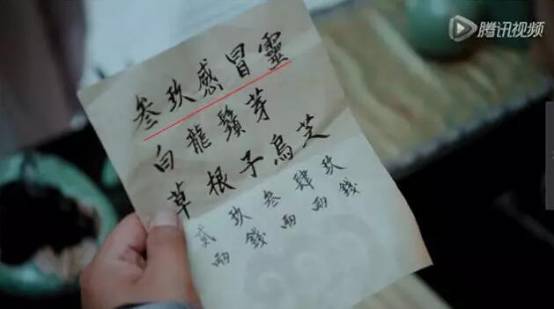 腾讯视频
叁玖感冒靈
白龍鬚芽
草根子烏芝
貳玖叁肆玖
兩錢兩兩錢